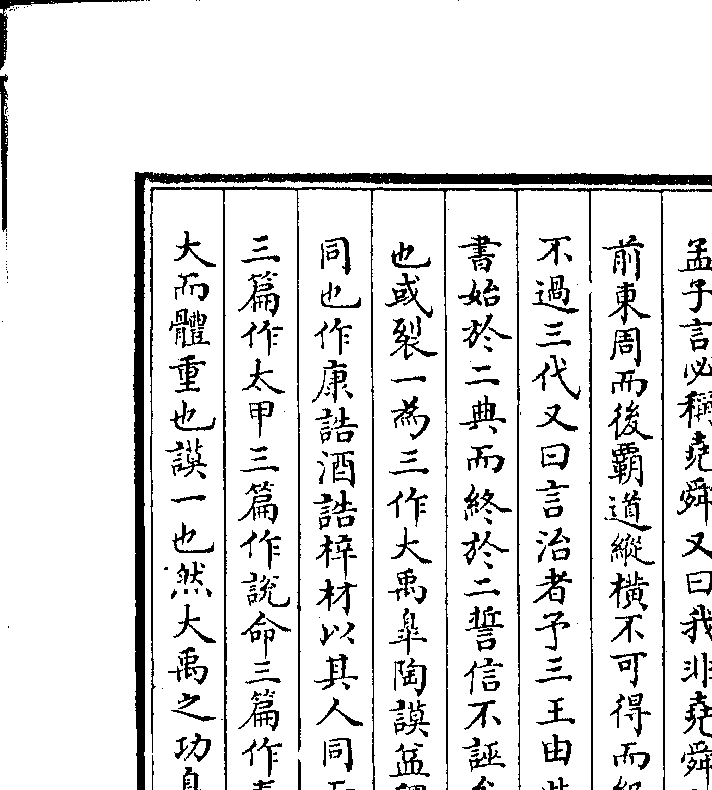 孟子言必稱堯舜又曰我非堯舜
前東周而後霸道縱橫不可得而
不過三代又曰言治者予三王由
書始於二典而終於二誓信不誣
也或裂一為三作大禹臯陶謨益稷
同也作康誥酒誥梓材以其人同
三篇作太甲三篇作說命三篇作
大而體重也謨一也然大禹之功